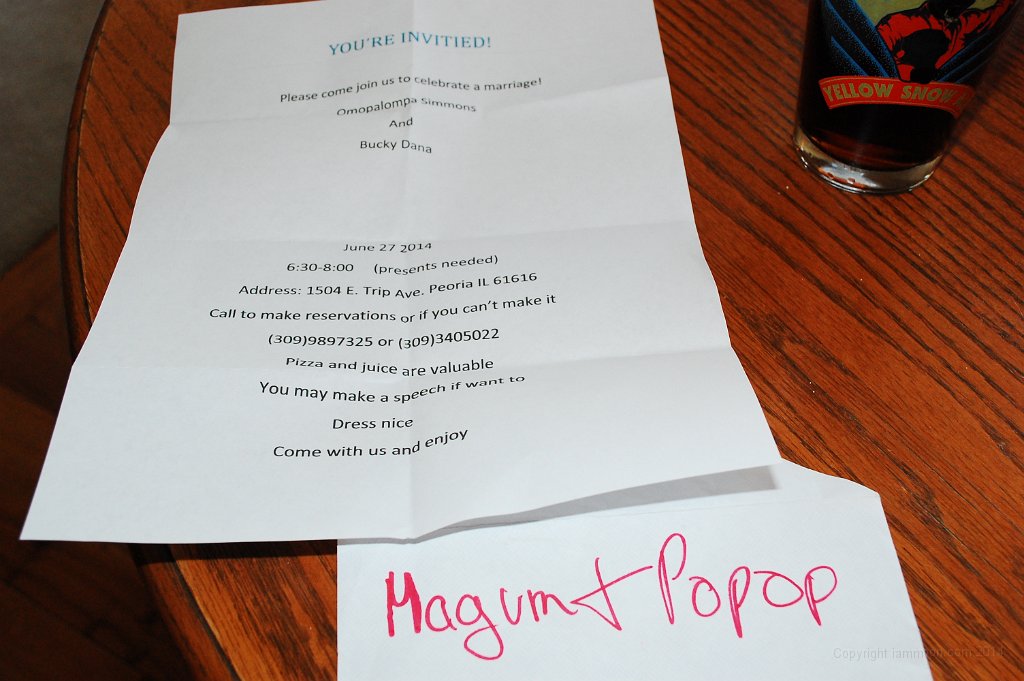 YOU'RE INVITIED!
Please come join us to celebrate a marriage!
Omopalompa Simmons
And
Bucky Dana
June 27 2014
6:30-8:00 (presents needed)
Address: 1504 E. Trip Ave. Peoria IL 61616
Call to make reservations or if you can't make it
(309)9897325 or (309)3405022
Pizza and juice are valuable
You may make a speech if want to
Dress nice
Come with us and enjoy
YELLOW SNOW
Magum + Popop
Copyright 2014